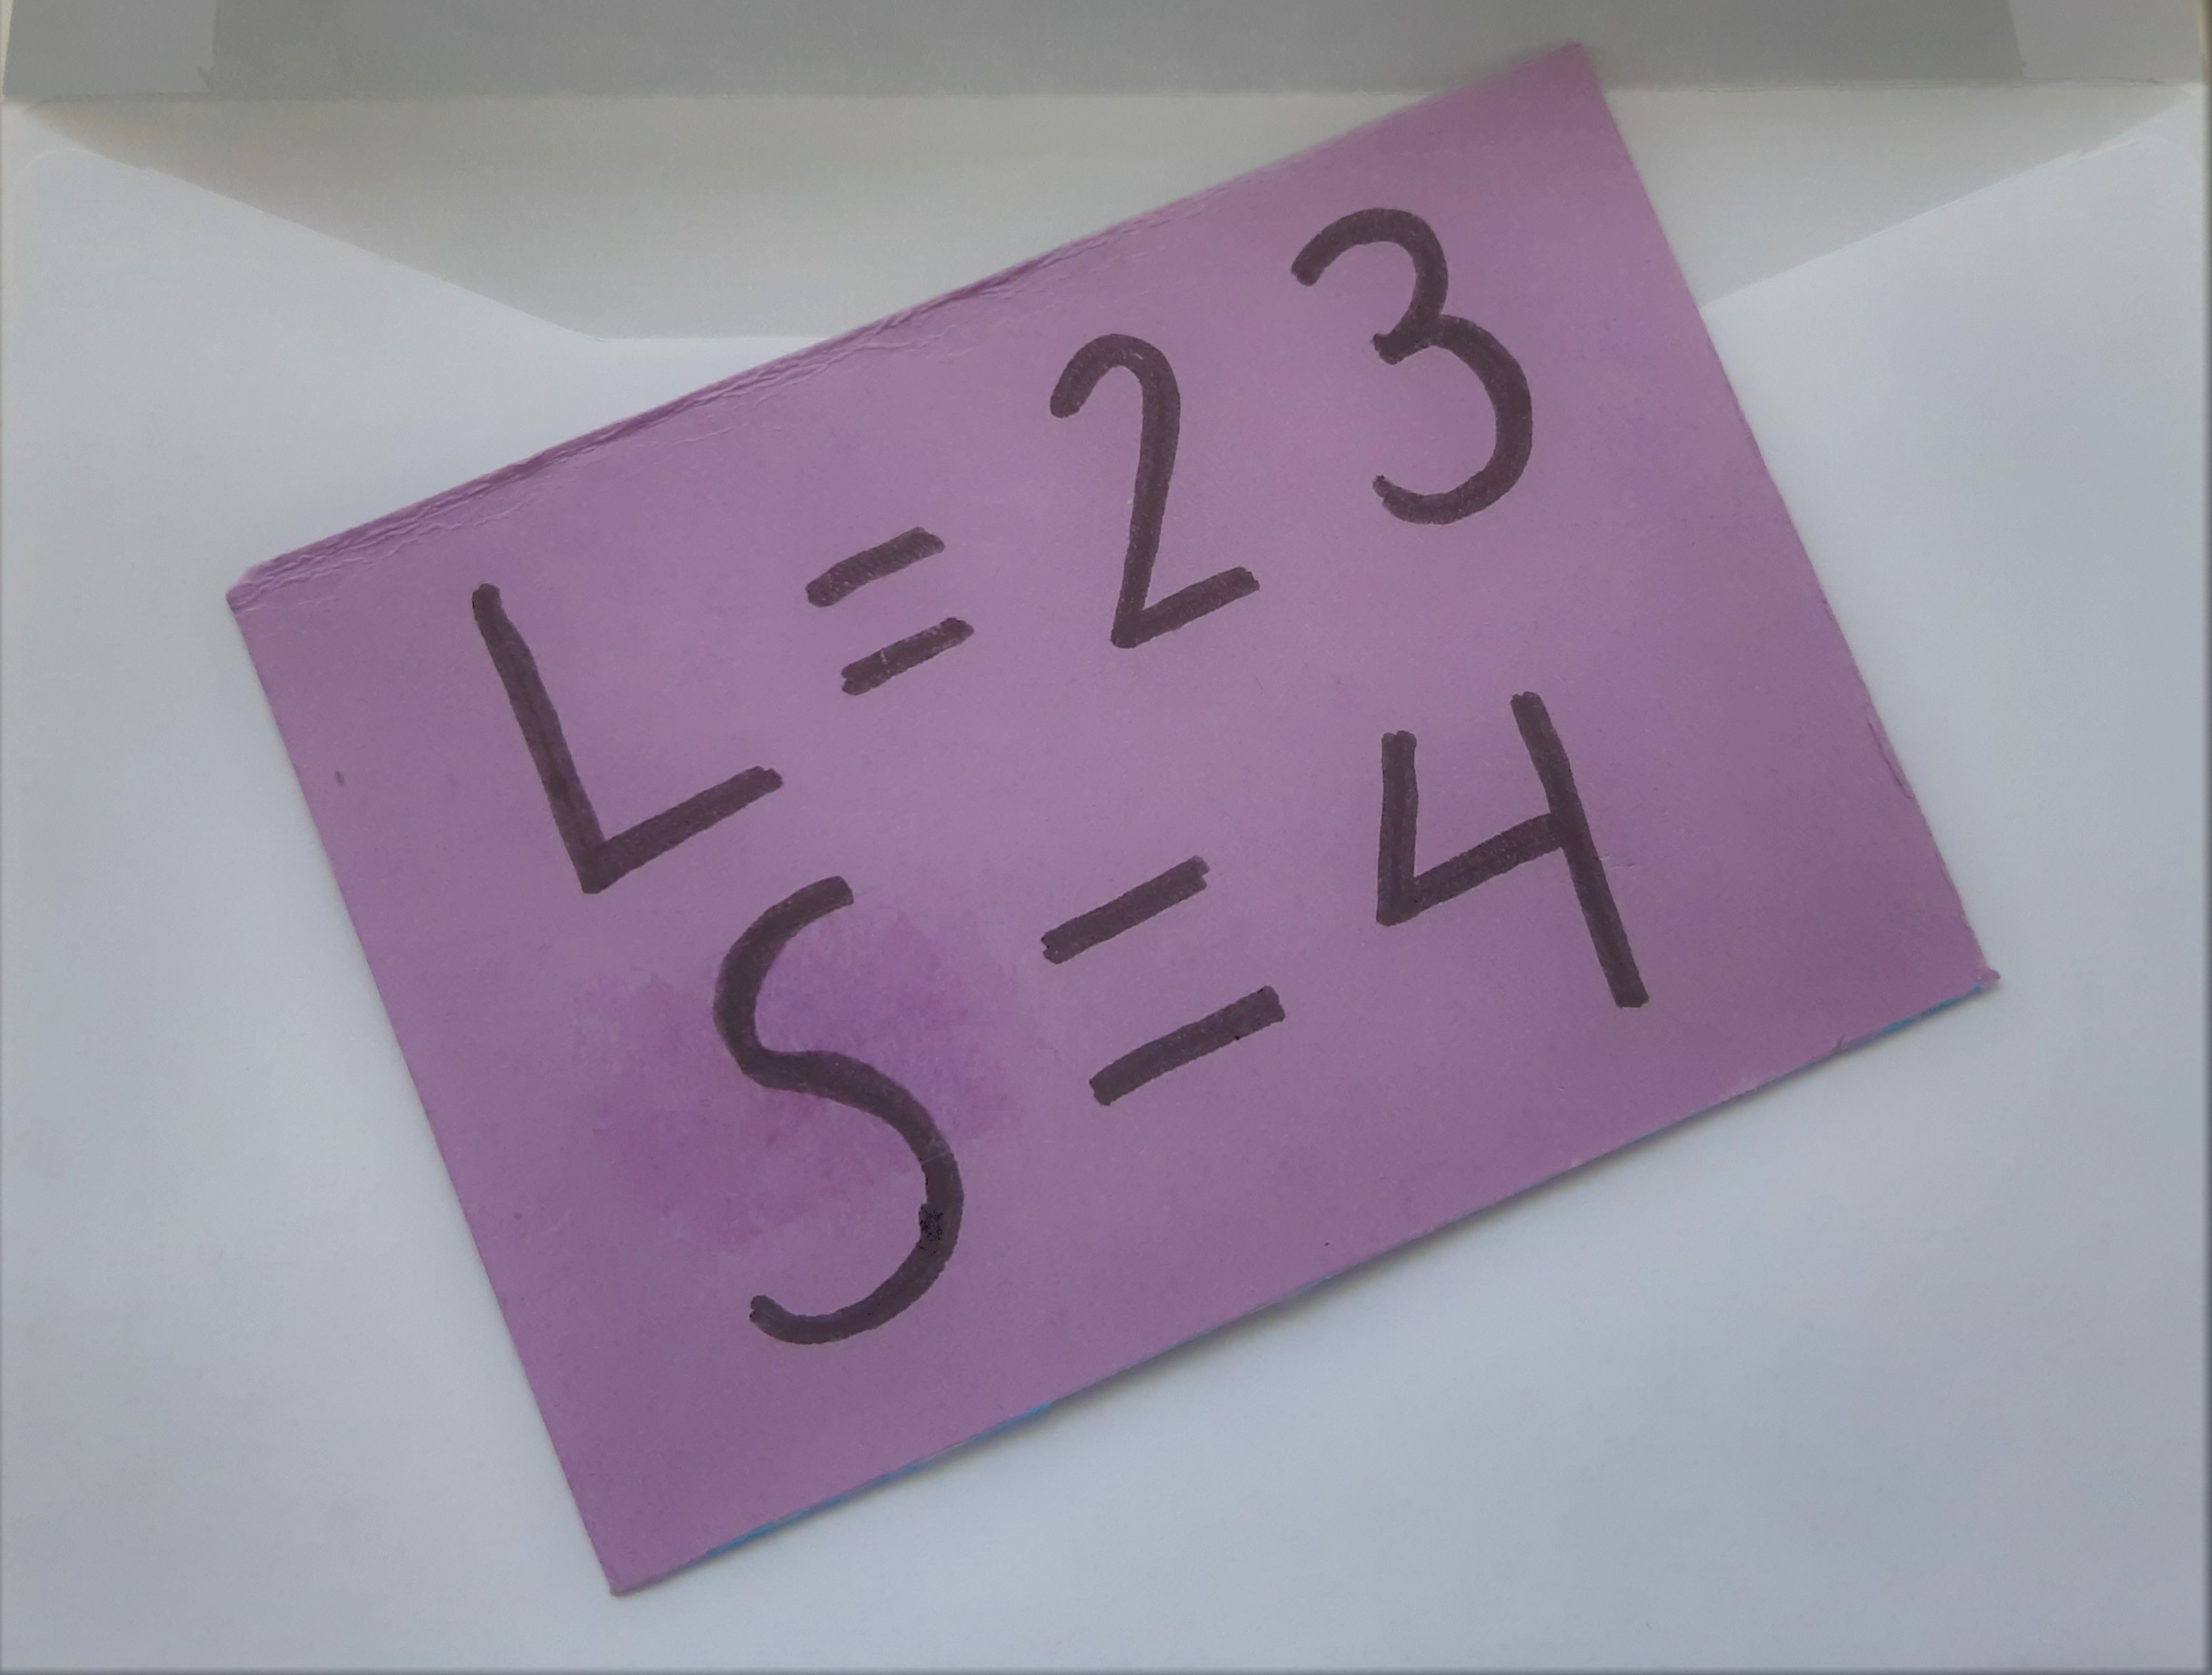 L = 23
S = 4